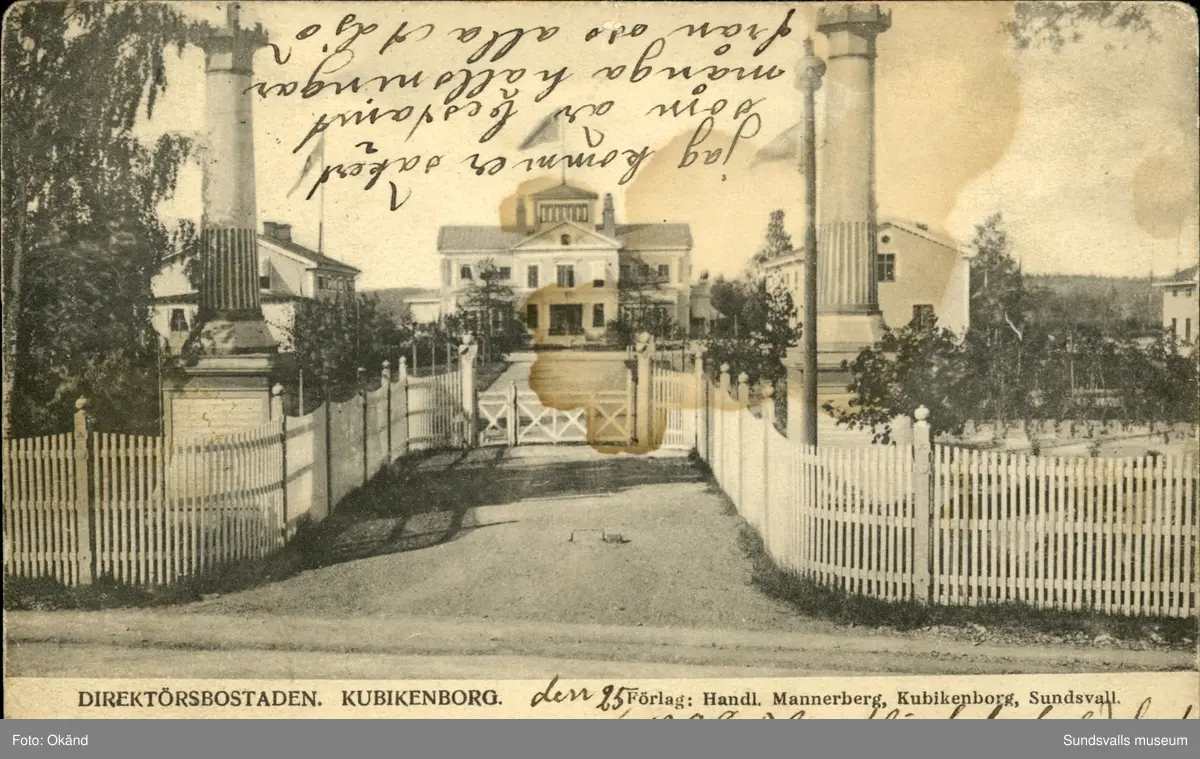 jag kommer säkert
som ar bestämt
många hälsningar
från oss alla Adjö
DIREKTÖRSBOSTADEN. KUBIKENBORG.
den 25
Förlag: Handl. Mannerberg, Kubikenborg, Sundsvall.
Foto: Okänd
Sundsvalls museum